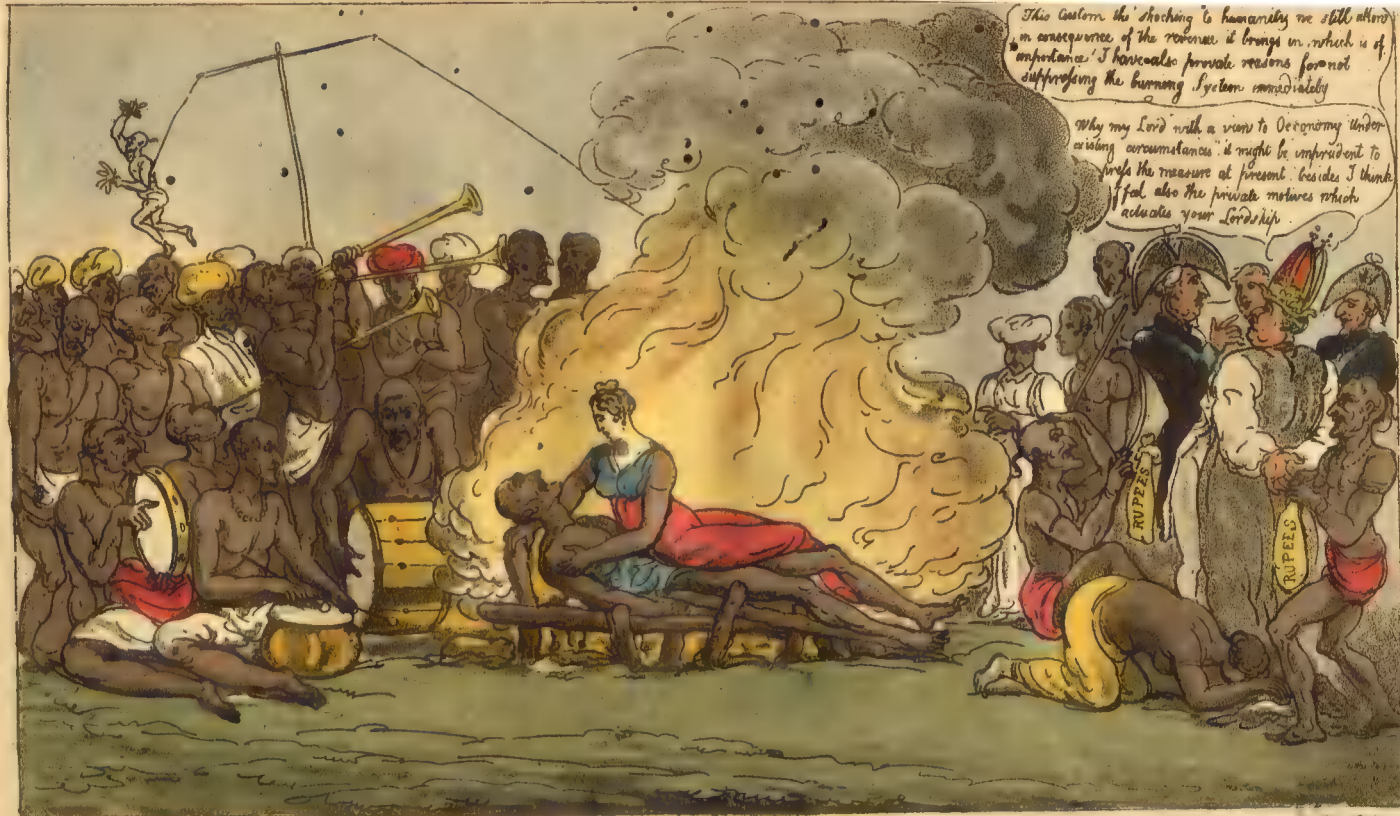 This Custom tho' shocking to humanity we still allow
in consequence of the revenue it brings in which is of
importance! I have also private reasons for not
suppressing the burning System immediately
Why my Lord with a view to Oeconomy under
existing circumstances" it might be imprudent to
press the measure at present. besides I think
I feel also the private motives which
actuates your Lordship.
RUPEES
RUPEES